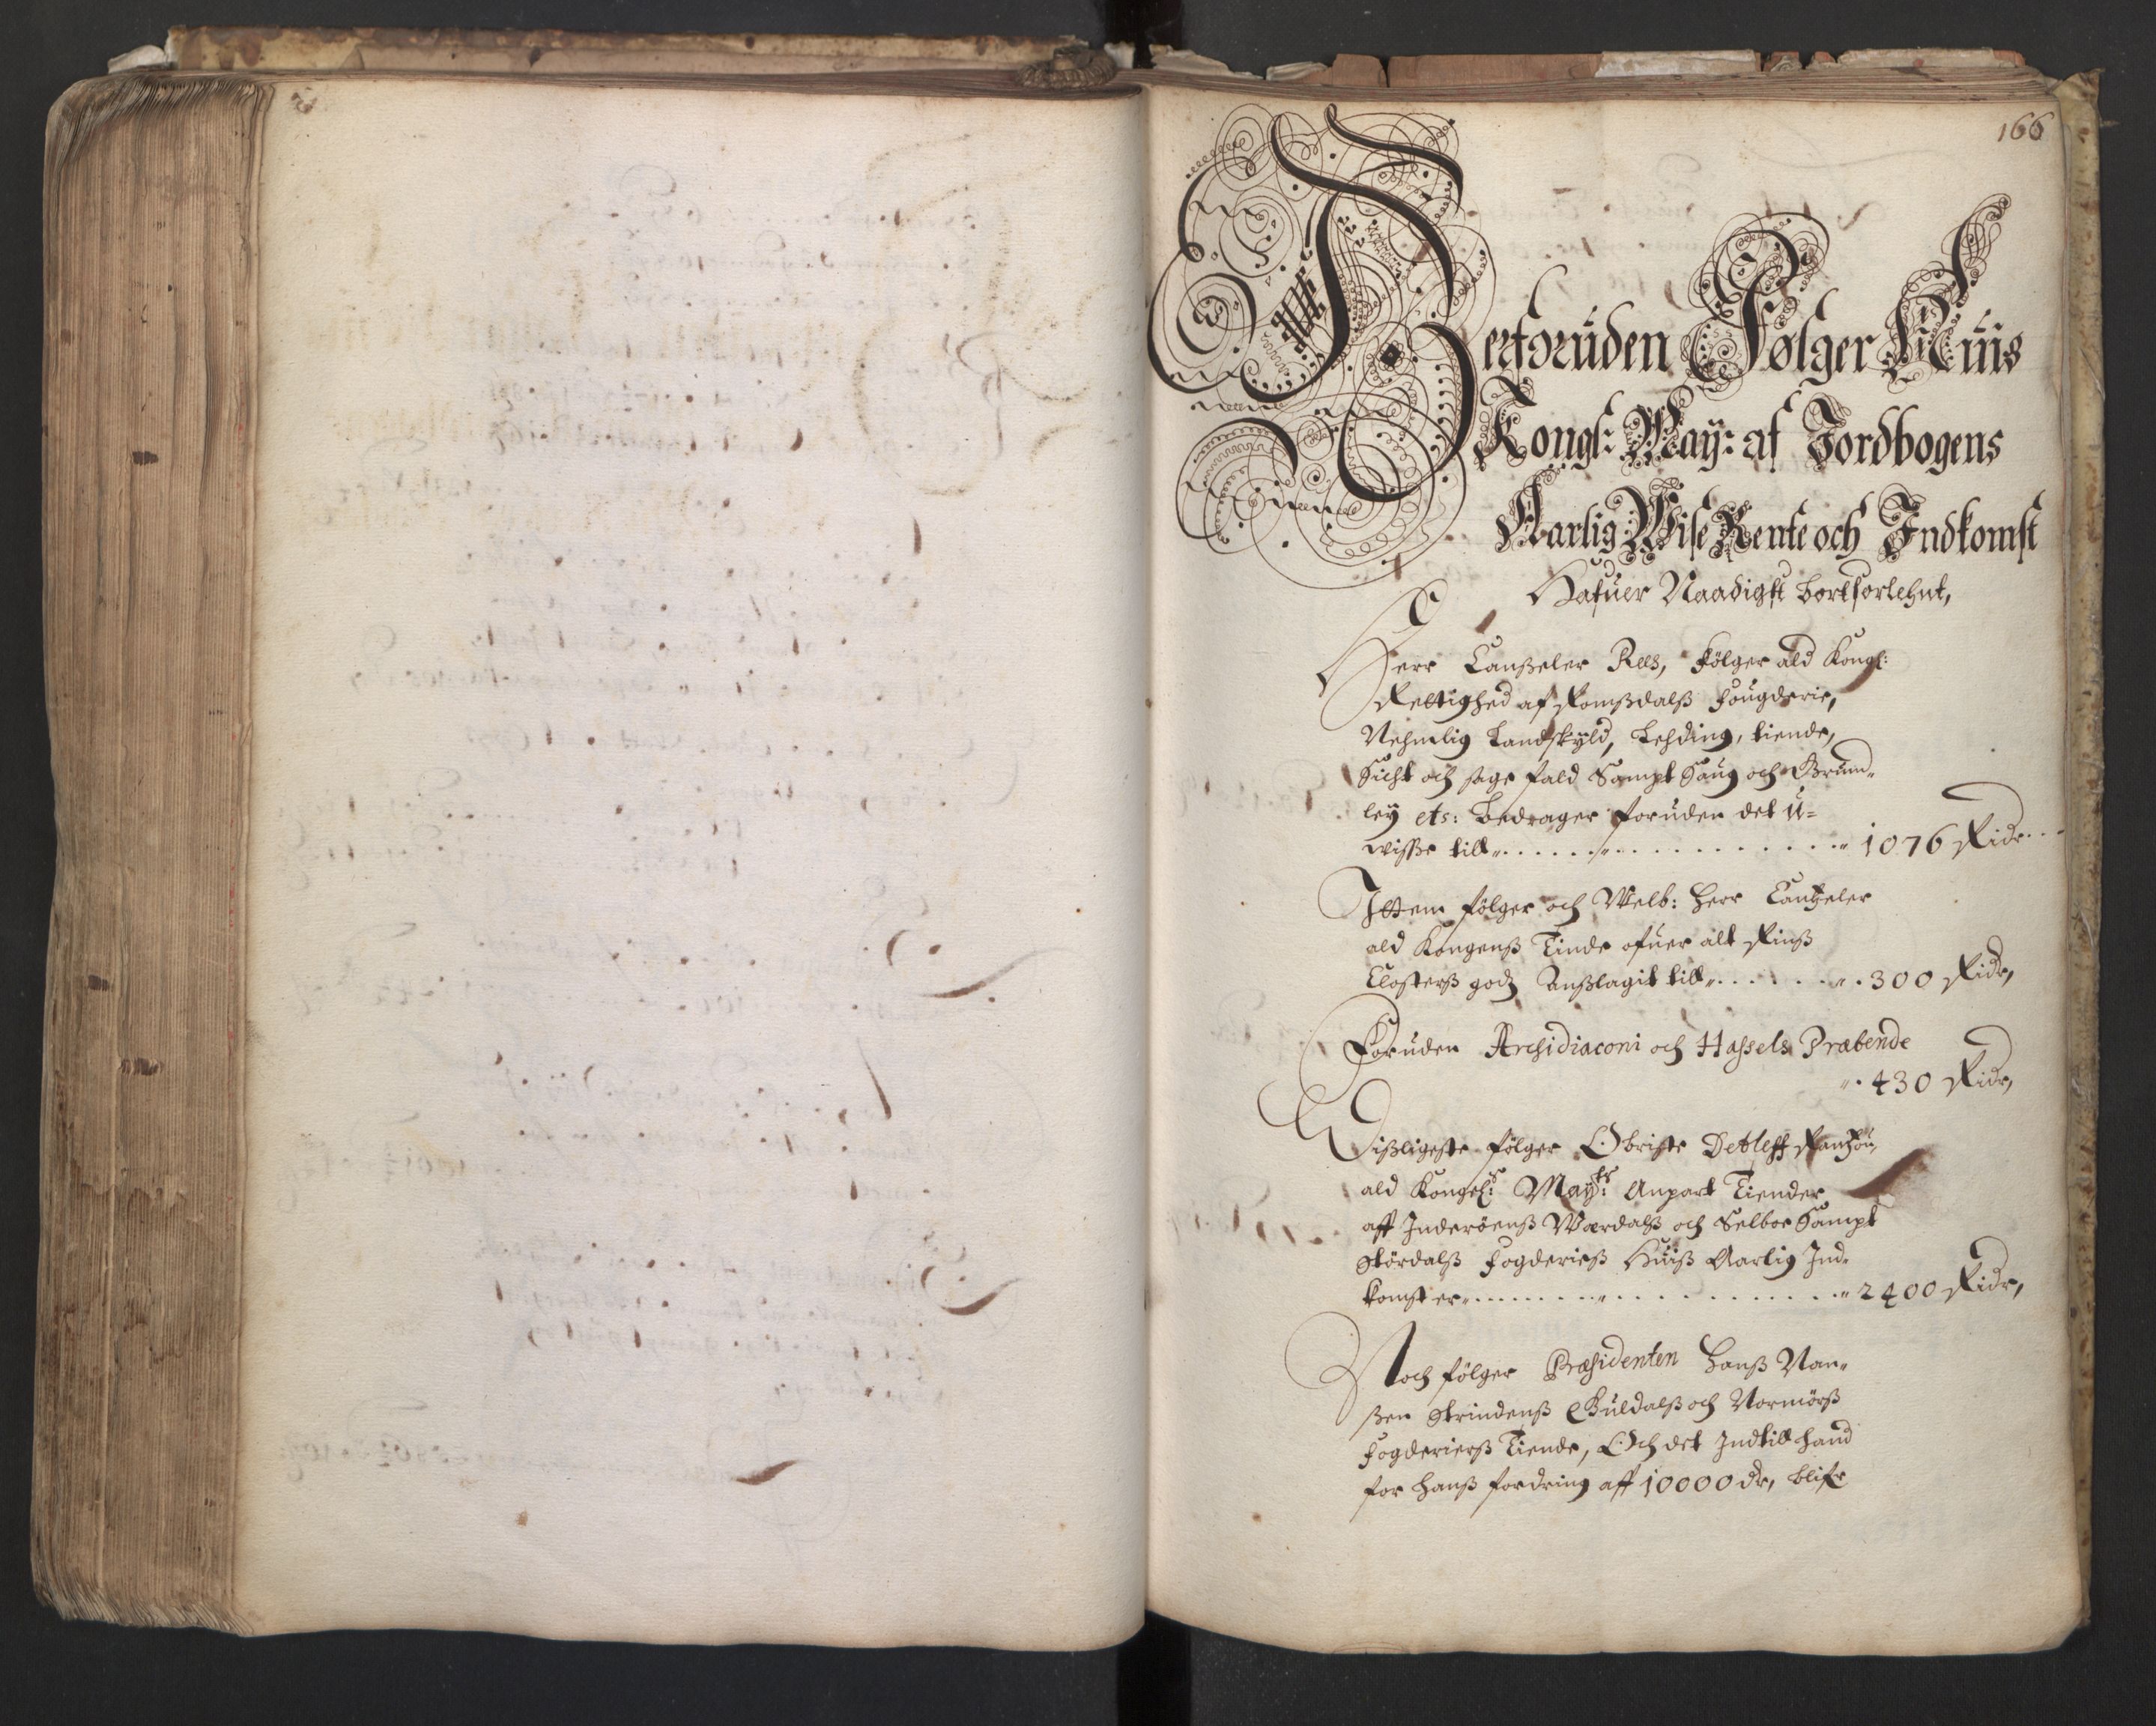 166
Herforuden Følger Huis
Kongl: May: af Jordbogens
Aarlig Wise Rente och Indkomst
Hafuer Naadigst bortforlehnt,
Herr Canßeler Rees, følger ald Kongl:
Rettighed af Romßdalß fougderie,
Nehmlig Landskÿld, Lehding, tiende,
Sicht och sage fald Sampt Saug och Grund-
leÿ etc: Bedrager foruden det U=
wisse till 1076 Ridr
Ittem følger och Welb: Herr Cantzeler
ald Kongenß Tinde ofuer alt Rinß
Closterß godz Anßlagit till 300 Ridr,
Foruden Archidiaconi och Hassels Præbende
430 Ridr,
Dißligeste følger Obriste Detleff Rantzou,
ald Kongel: Maytz: Anpart Tiender
aff Inderöenß Værdalß och Selboe Sampt
Stördalß fogderieß Huiß Aarlig Ind-
komst er 2400 Ridr,
Noch følger Præsidenten Hanß Nan-
ßen Strindenß Guldalß och Normörß
fogderierß Tiende, Och det Indtill hand
for hanß fordring aff 10000 dr, blifr